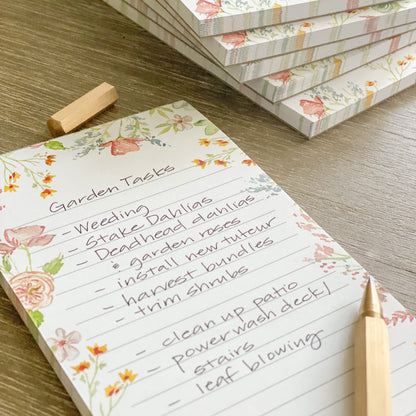 Garden Tasks
- Weeding
- Stake Dahlias
- Deadhead dahlias
• garden roses
- install new tuteur
- harvest bundles
- trim shrubs
- clean up patio
- power wash deck/
stairs
- leaf blowing